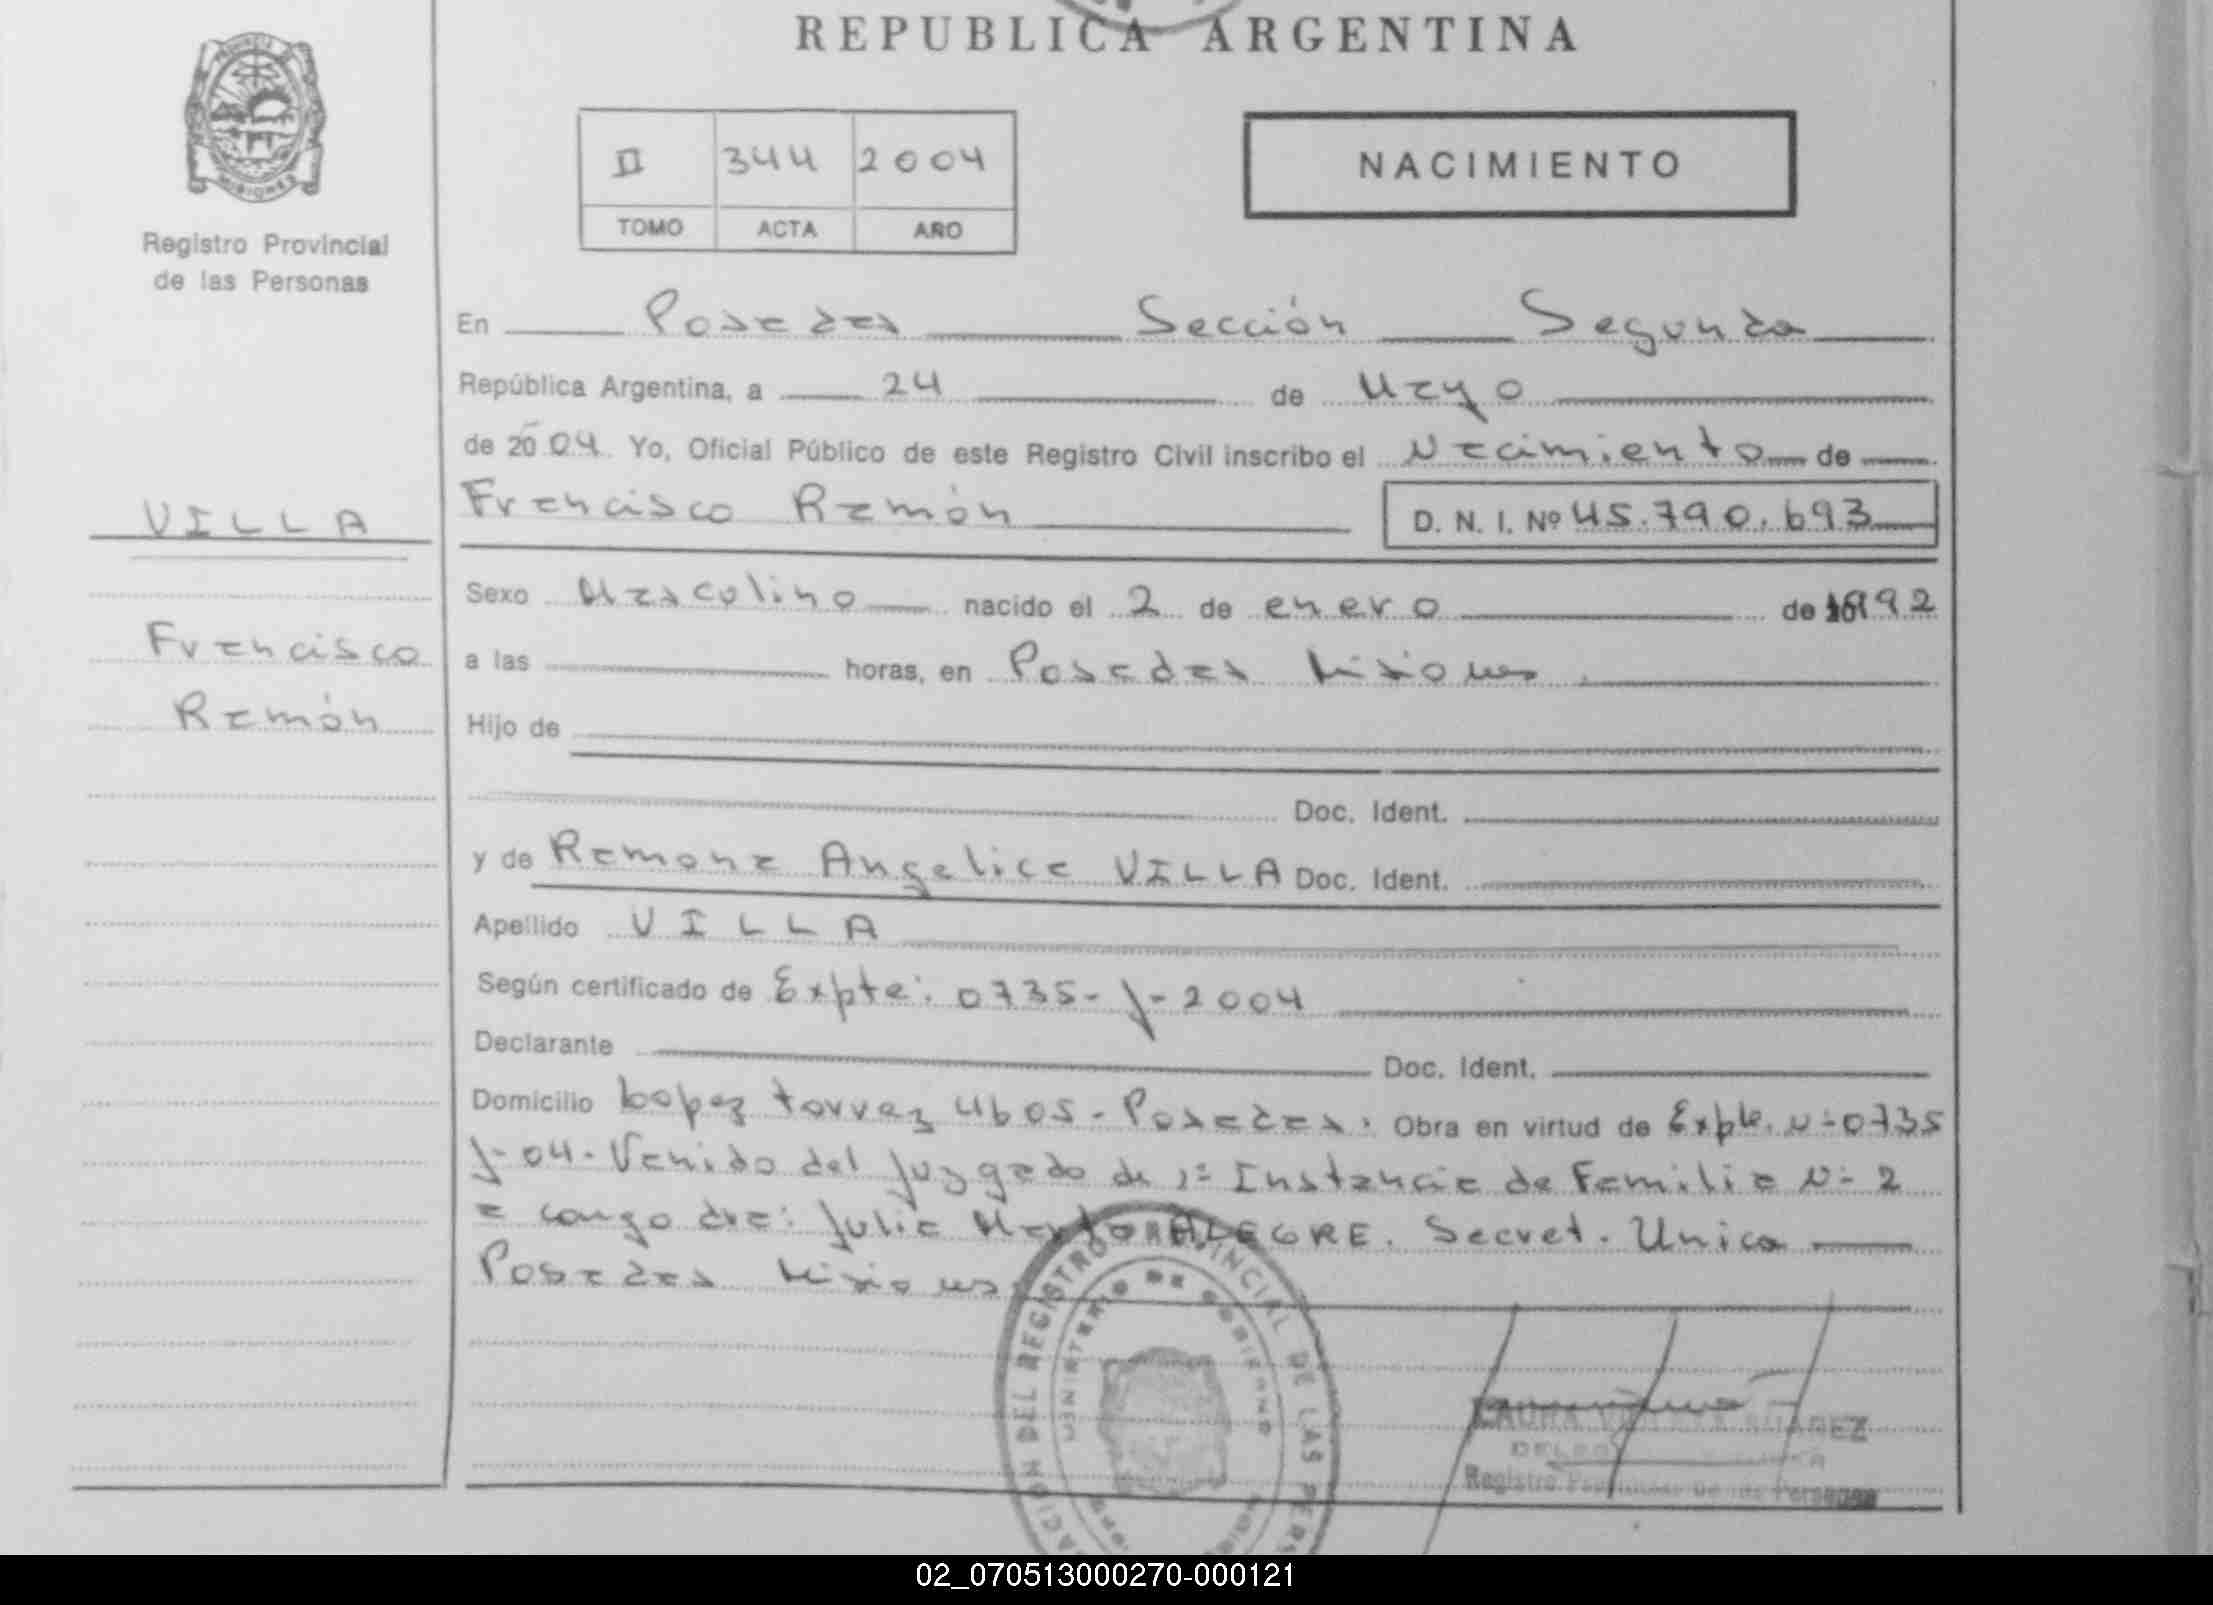 REPUBLICA ARGENTINA
MISIONES
Registro Provincial
de las Personas
II 344 2004
TOMO ACTA AÑO
NACIMIENTO
En Posadas Sección Segunda
República Argentina, a 24 de Mayo
de 2004 Yo, Oficial Público de este Registro Civil inscribo el Nacimiento de
VILLA
Francisco Ramón D. N. I. Nº 45.790.693
Sexo Masculino nacido el 2 de enero de 1992
Francisco
a las horas, en Posadas Misiones
Ramón
Hijo de
Doc. Ident.
y de Ramona Angelica VILLA Doc. Ident.
Apellido VILLA
Según certificado de Expte: 0735-J-2004
Declarante Doc. Ident.
Domicilio Lopez torrez 4605 - Posadas. Obra en virtud de Expte. Nº 0735
J-04. Venido del Juzgado de 1º Instancia de Familia Nº 2
a cargo dra: Julia ALEGRE. Secret. Unica
Posadas Misiones
DEL REGISTRO PROVINCIAL DE LAS
MINISTERIO DE GOBIERNO
Registro
02_070513000270-000121